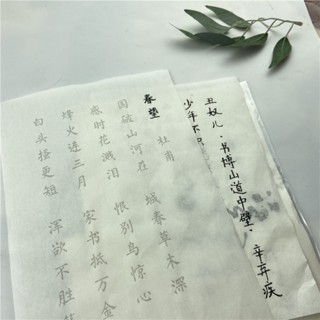 丑奴儿·书博山道中壁·辛弃疾
少年不
春望
杜甫
国破山河在 城春草木深
感时花溅泪 恨别鸟惊心
烽火连三月 家书抵万金
白头搔更短 浑欲不胜